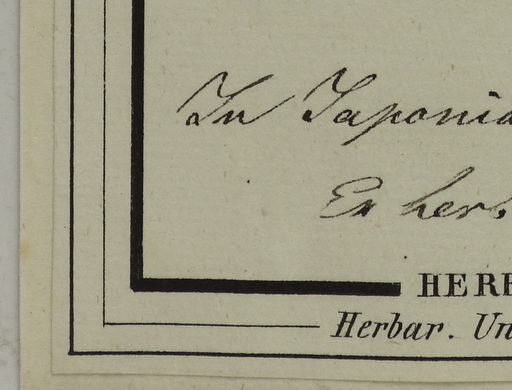 In Japonia
Ex herb.
HERB
Herbar. Un